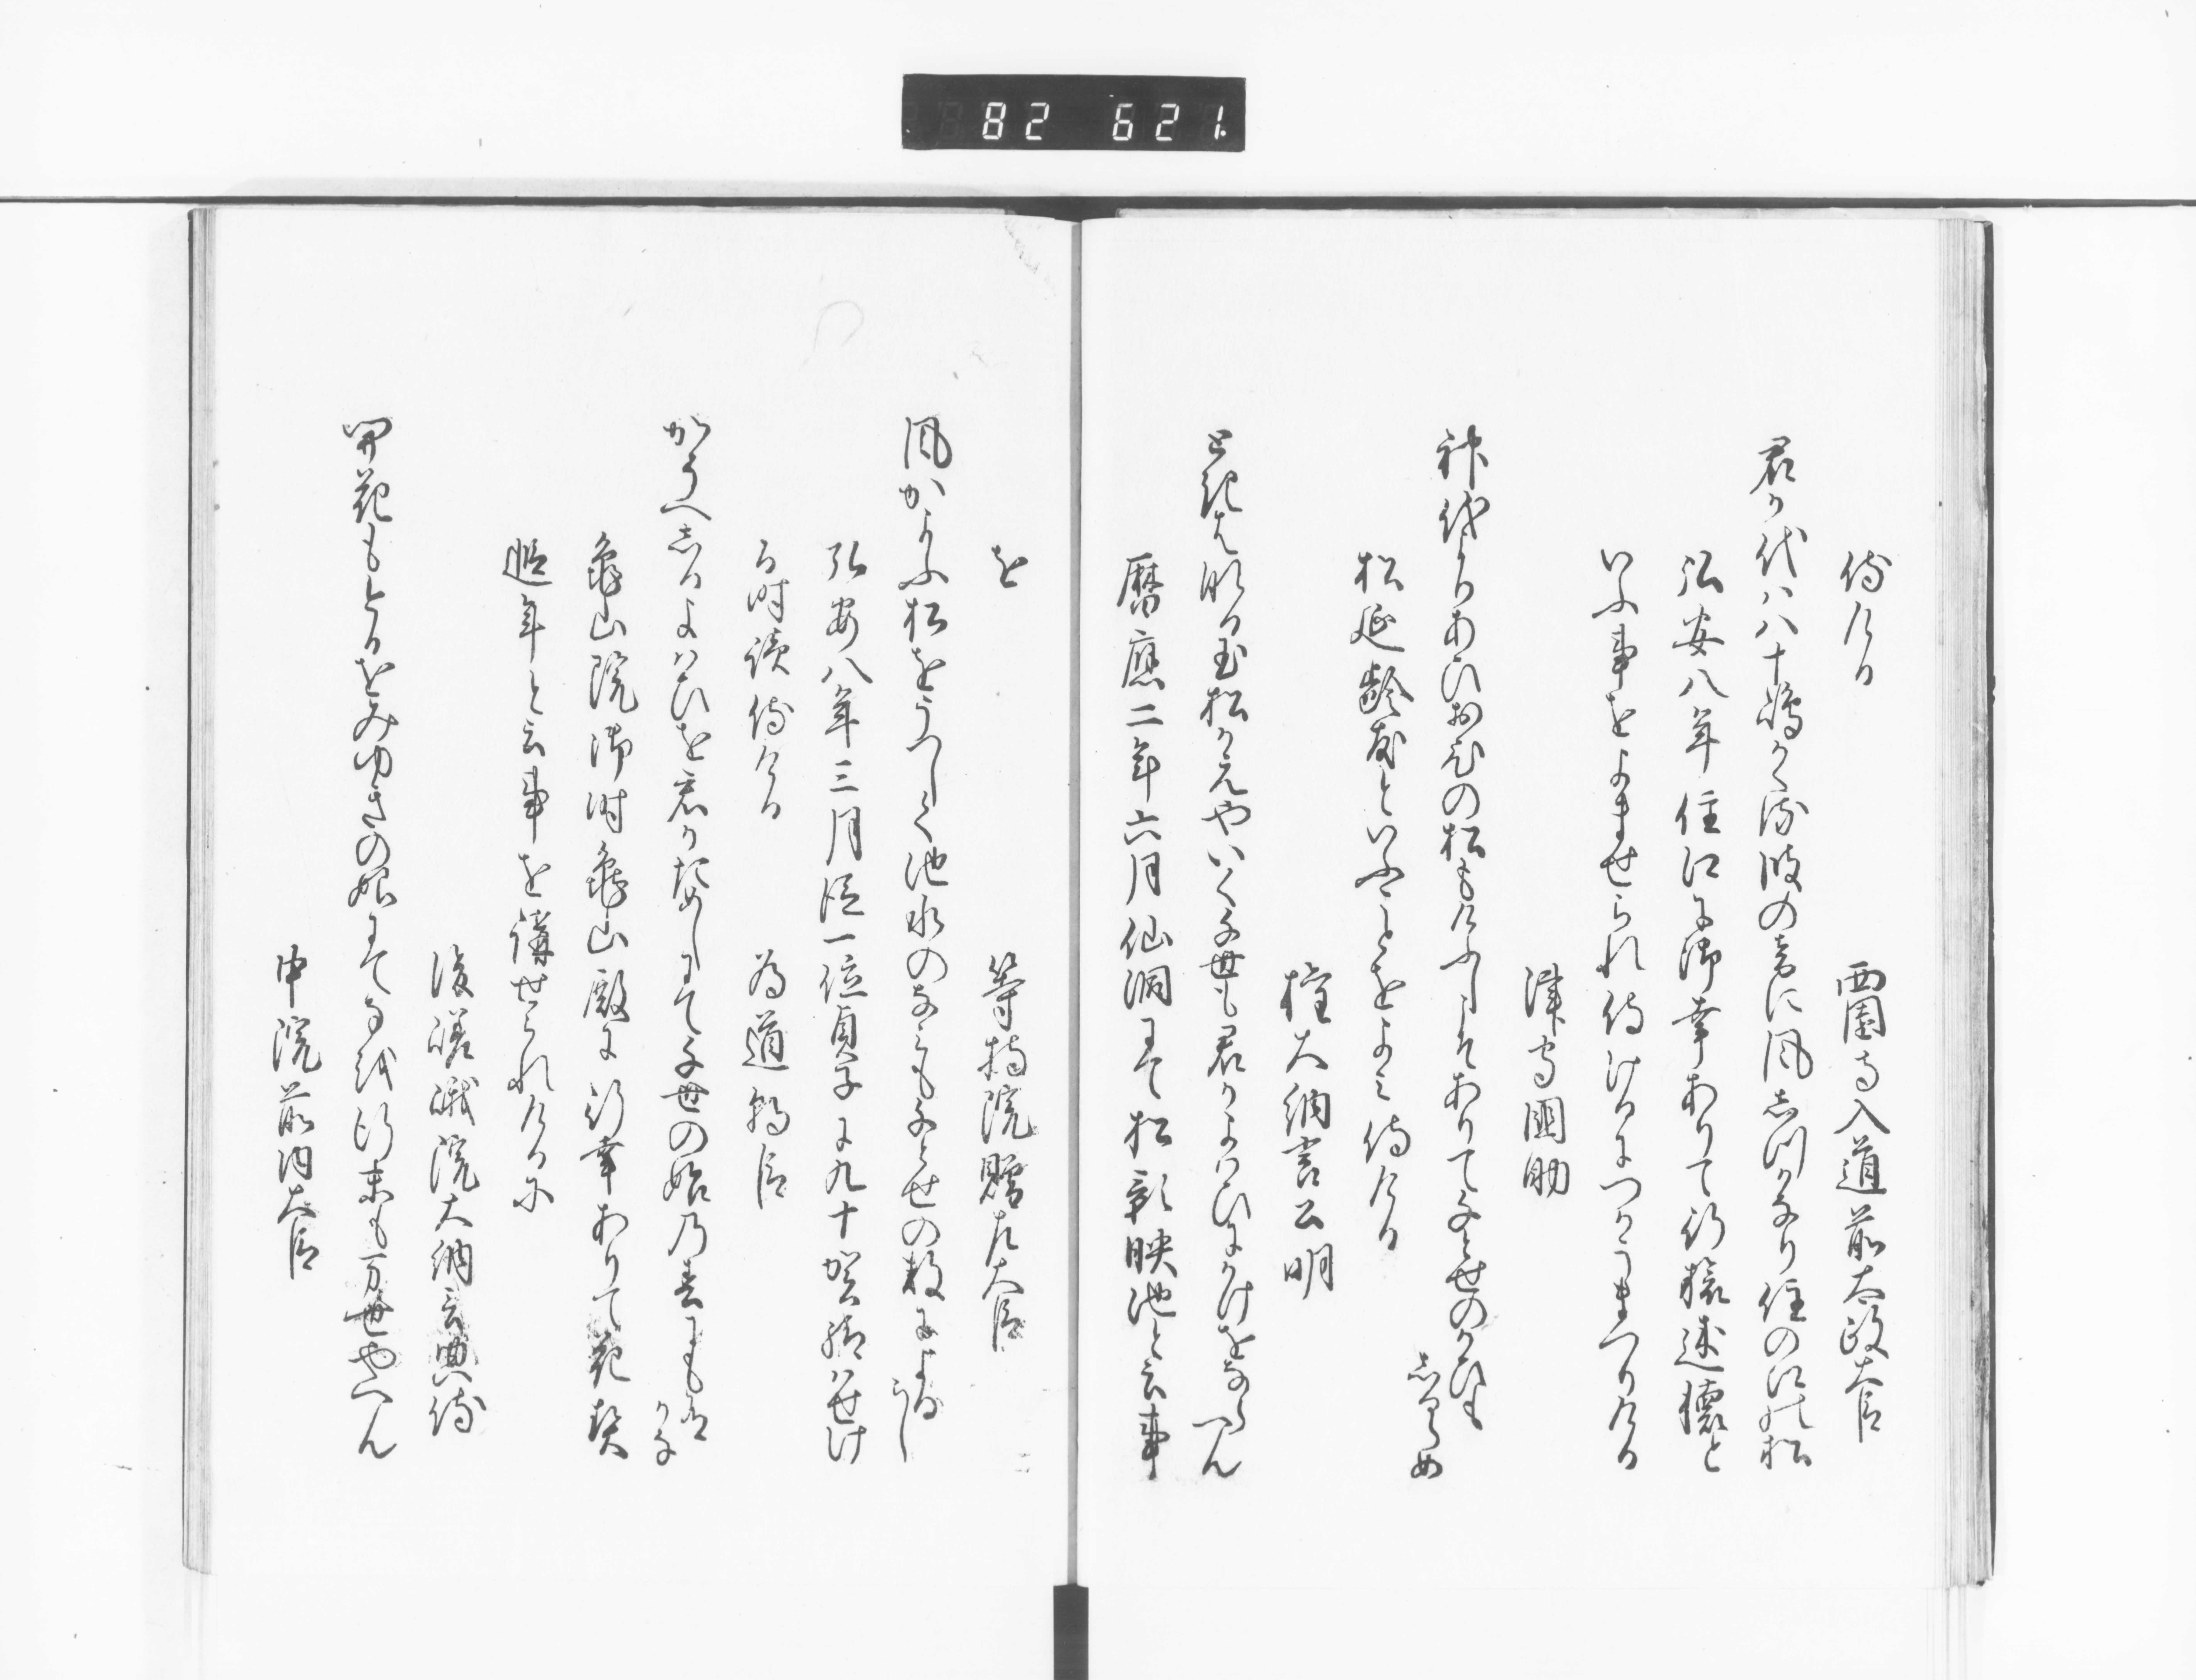 82 621
侍ける　西園寺入道前太政大臣
君か代は八十嶋かくる浪の音に風しつかなり住の江の松
弘安八年住江に御幸ありて行旅述懐と
いふ事をよませられ侍けるにつかうまつりける
津守国助
神代よりあひおひの松もけふしこそありて千とせのかひもしるらめ
松延齢友といふことをよみ侍ける
権大納言公明
ときはなる玉松かえやいく千世も君かよはひにかけをならへん
暦應二年六月仙洞にて松影映池と云事
を　等持院贈左大臣
風かよふ松をうつして池水のなみも千とせの数によるらし
弘安八年三月従一位貞子に九十賀給はせけ
る時読侍ける　為道朝臣
かそへしるよはひを君かためしにて千世の始の春にも有かな
亀山院御時亀山殿に行幸ありて花契
遐年と云事を講せられけるに
後嵯峨院大納言典侍
開花もけふをみゆきの始にてなを行末も万世やへん
中院前内大臣